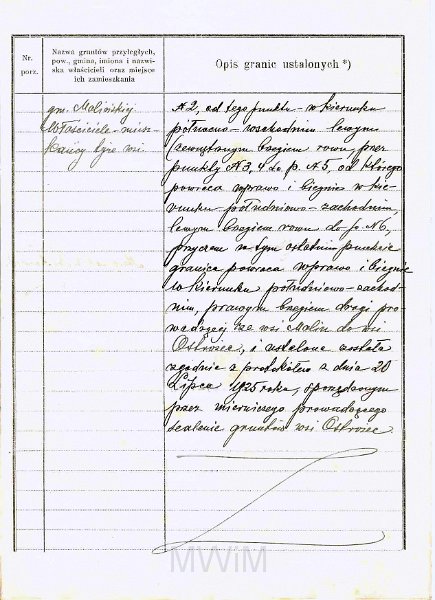 Nr. porz.
Nazwa gruntów przyległych, pow., gmina, imiona i nazwiska właścicieli oraz miejsce ich zamieszkania
Opis granic ustalonych *)
gm. Malińskiej
Właściciele-miesz-
kańcy tejże wsi
N2, od tego punktu w kierunku
północno-wschodnim lewym
(zewnętrznym) brzegiem rowu, przez
punkty N3, 4 do p. N5, od którego
powraca wprawo i biegnie w kie-
runku południowo-zachodnim,
lewym brzegiem rowu do p. N6,
przyczem w tym ostatnim punkcie
granica powraca wprawo i biegnie
w kierunku południowo-zachod-
nim, prawym brzegiem drogi pro-
wadzącej ze wsi Malin do wsi
Ostrożec, i ustalona została
zgodnie z protokółem z dnia 20
Lipca 1925 roku, sporządzonym
przez mierniczego prowadzącego
scalenie gruntów wsi Ostrożec.
MWiM